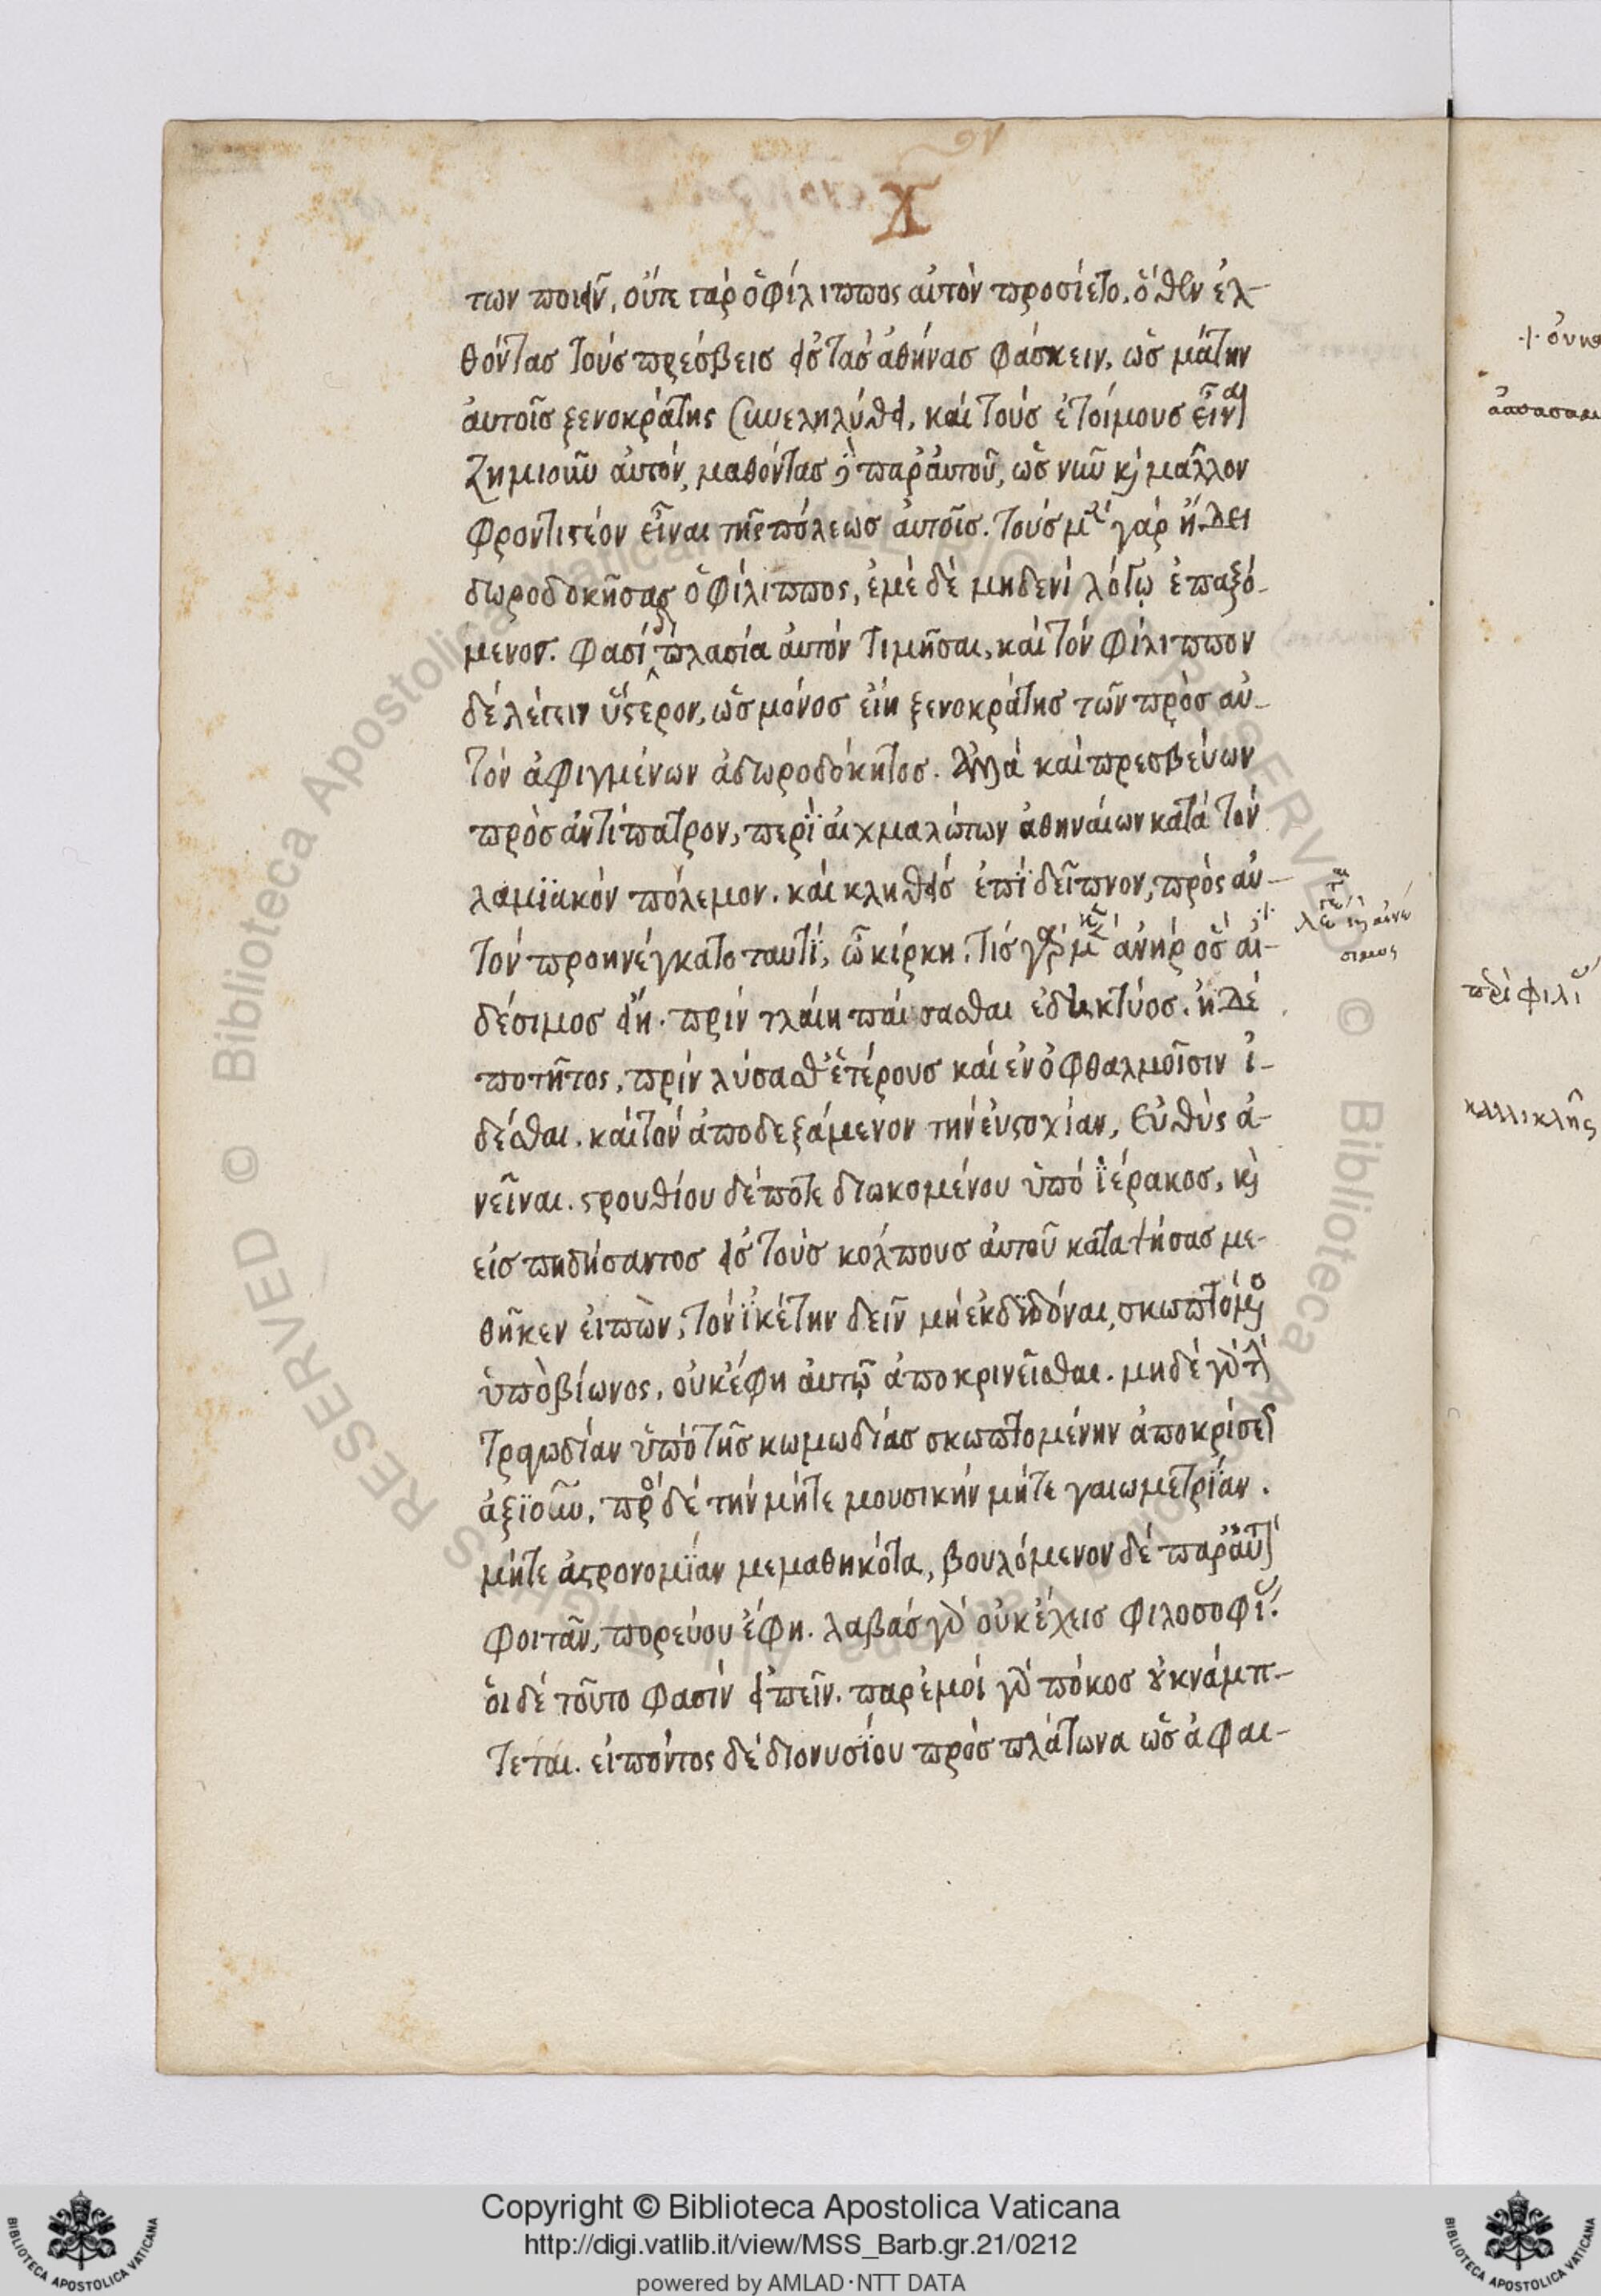 X
των ποιεῖν, οὔτε γὰρ ὁ φίλιππος αὐτὸν προσίετο. ὅθεν ἐλ-
θόντας τοὺς πρέσβεις εἰς τὰς ἀθήνας φάσκειν, ὡς μάτην
αὐτοῖς ξενοκράτης συνεληλύθει, καὶ τοὺς ἑτοίμους εἶναι
ζημιοῦν αὐτόν, μαθόντας δὲ παρ' αὐτοῦ, ὡς νῦν καὶ μᾶλλον
φροντιστέον εἶναι τῆς πόλεως αὐτοῖς. τοὺς μὲν γὰρ ἤδει
δωροδοκήσας ὁ φίλιππος, ἐμὲ δὲ μηδενὶ λόγῳ ἐπαξό-
μενος. φασὶ διπλασία αὐτὸν τιμῆσαι, καὶ τὸν φίλιππον
δὲ λέγειν ὕστερον, ὡς μόνος εἴη ξενοκράτης τῶν πρὸς αὐ-
τὸν ἀφιγμένων ἀδωροδόκητος. ἀλλὰ καὶ πρεσβεύων
πρὸς ἀντίπατρον, περὶ αἰχμαλώτων ἀθηναίων κατὰ τὸν
λαμϊακὸν πόλεμον. καὶ κληθεὶς ἐπὶ δεῖπνον, πρὸς αὐ-
τὸν προηνέγκατο ταυτί, ὦ κίρκη. τίς γάρ μὲν ἀνὴρ ὃς αἰ-
δέσιμος εἴη. πρὶν τλαίη πάσασθαι ἐδητύος. ἠδὲ
ποτῆτος, πρὶν λύσασθ' ἑτέρους καὶ ἐν ὀφθαλμοῖσιν ἰ-
δέσθαι. καὶ τὸν ἀποδεξάμενον τὴν εὐστοχίαν, εὐθὺς ἀ-
νεῖναι. στρουθίου δέ ποτε διωκομένου ὑπὸ ἱέρακος, καὶ
εἰσπηδήσαντος εἰς τοὺς κόλπους αὐτοῦ καταψήσας με-
θῆκεν εἰπών, τὸν ἱκέτην δεῖν μὴ ἐκδιδόναι, σκωπτόμενος
ὑπὸ βίωνος, οὐκ ἔφη αὐτῷ ἀποκρινεῖσθαι. μηδὲ γὰρ τὴν
τραγῳδίαν ὑπὸ τῆς κωμωδίας σκωπτομένην ἀποκρίσεως
ἀξιοῦν, πρὸς δὲ τὴν μήτε μουσικὴν μήτε γαιωμετρίαν.
μήτε ἀστρονομίαν μεμαθηκότα, βουλόμενον δὲ παρ' αὐτὸν
φοιτᾶν, πορεύου ἔφη. λαβὰς γὰρ οὐκ ἔχεις φιλοσοφίας.
οἱ δὲ τοῦτο φασὶν εἰπεῖν. παρ' ἐμοὶ γὰρ πόκος οὐ κνάμπ-
τεται. εἰπόντος δὲ διονυσίου πρὸς πλάτωνα ὡς ἀφαι-
περὶ φιλί
καλλικλῆς
Copyright © Biblioteca Apostolica Vaticana
http://digi.vatlib.it/view/MSS_Barb.gr.21/0212
powered by AMLAD·NTT DATA
BIBLIOTECA APOSTOLICA VATICANA
BIBLIOTECA APOSTOLICA VATICANA
© Biblioteca Apostolica Vaticana ALL RIGHTS RESERVED